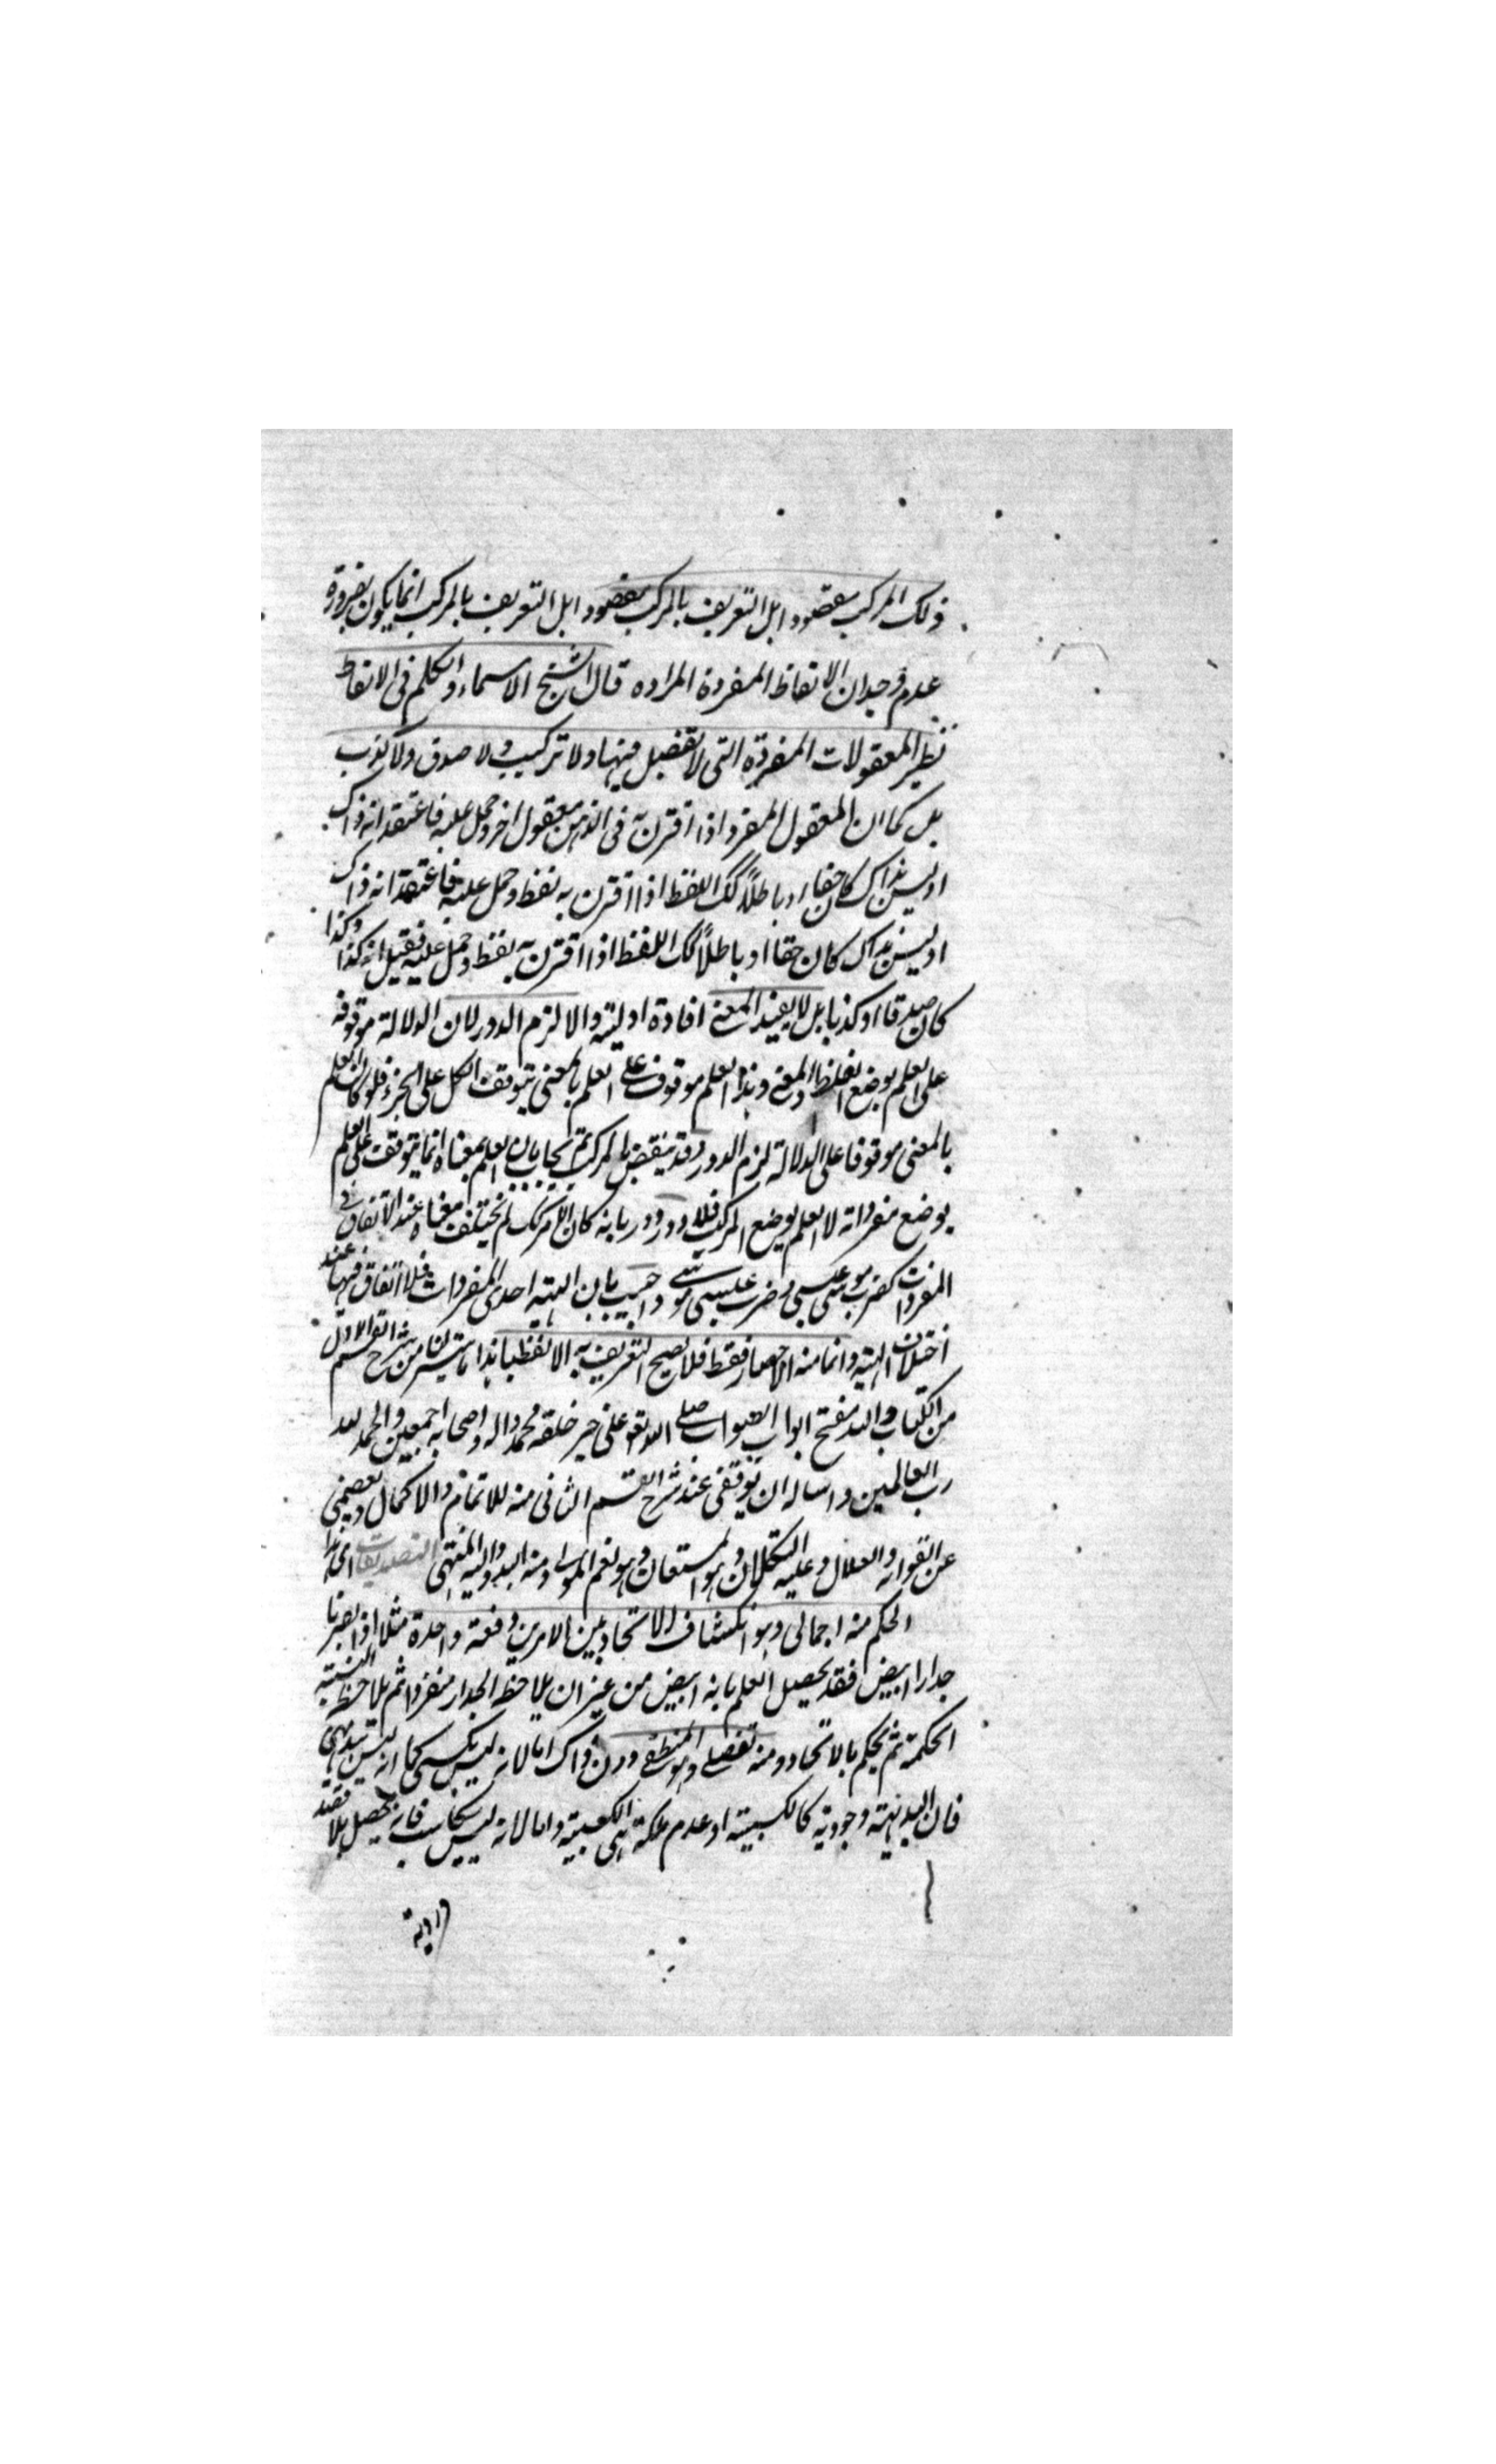 ذلك المركب مقصود اهل التعريف بالمركب مقصود اهل التعريف بالمركب انما يكون بضرورة
عدم وجدان الالفاظ المفردة المرادة قال الشيخ الاسماء والكلم فى الالفاظ
نظير المعقولات المفردة التى لا تفصيل فيها ولا تركيب ولا صدق ولا كذب
بل كما ان المعقول المفرد اذا اقترن به فى الذهن معقول اخر وحمل عليه فاعتقد انه ذاك
او ليس بذاك كان حقا او باطلاً كك اللفظ اذا اقترن به لفظ وحمل عليه فاعتقد انه ذاك
او ليس بذاك كان حقا او باطلاً كك اللفظ اذا اقترن به لفظ وحمل عليه فقيل انه كذا وكذا
كان صدقا او كذبا بل لا يفيد المعنى افادة اولية والا لزم الدور لان الدلالة موقوفة
على العلم بوضع اللفظ للمعنى وهذا العلم موقوف على العلم بالمعنى توقف الكل على الجزء فلو كان العلم
بالمعنى موقوفا على الدلالة لزم الدور وقد ينقض بالمركب ثم يجاب بان العلم بمعناه انما يتوقف على العلم
بوضع مفرداته لا العلم بوضع المركب فلا دور ورد بانه كان المركب لم يختلف معناه عند الاتفاق فى
المفردات كضرب موسى عيسى وضرب عيسى موسى واجيب بان الهيئة احدى المفردات فلا اتفاق فيها عند
اختلاف الهيئة وانما منه الاحضار فقط فلا يصح التعريف به الا لفظيا هذا ما تيسر لى من شرح القسم الاول
من الكتاب والله مفتح ابواب الصواب صلى الله تعالى على خير خلقه محمد واله واصحابه اجمعين والحمد لله
رب العالمين واساله ان يوفقنى عند شرح القسم الثانى منه للاتمام والاكمال ويعصمنى
عن الغواية والضلال وعليه التكلان وهو المستعان وهو نعم المولى ومنه البدء واليه المنتهى التصديقات اى هذا
الحكم منه اجمالى وهو انكشاف الاتحاد بين الامرين دفعة واحدة مثلا اذا ابصرنا
جدارا ابيض فقد يحصل العلم بانه ابيض من غير ان يلاحظ الجدار منفردا ثم يلاحظ النسبة
الحكمية ثم يحكم بالاتحاد ومنه تفصيلى وهو المنطقى دون ذاك اما لانه ليس بكسبى كما انه ليس ببديهى
فان البديهية وجودية كالكسبية او عدم ملكة هى الكسبية واما لانه ليس بكاسب فانه يحصل بلا قصد